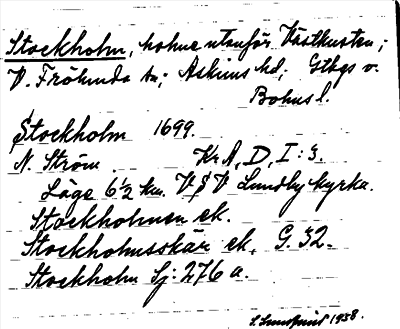 Stockholm, holme utanför Västkusten;
V. Frölunda sn; Askims hd; Gtbgs o.
Bohus l.
Stockholm 1699.
N. Ström Kr A, D, I:3.
Läge 6½ km. V S V Lundby kyrka.
Stockholmen ek.
Stockholmsskär ek. G. 32.
Stockholm Sj: 276 a.
S. Lundquist 1938.